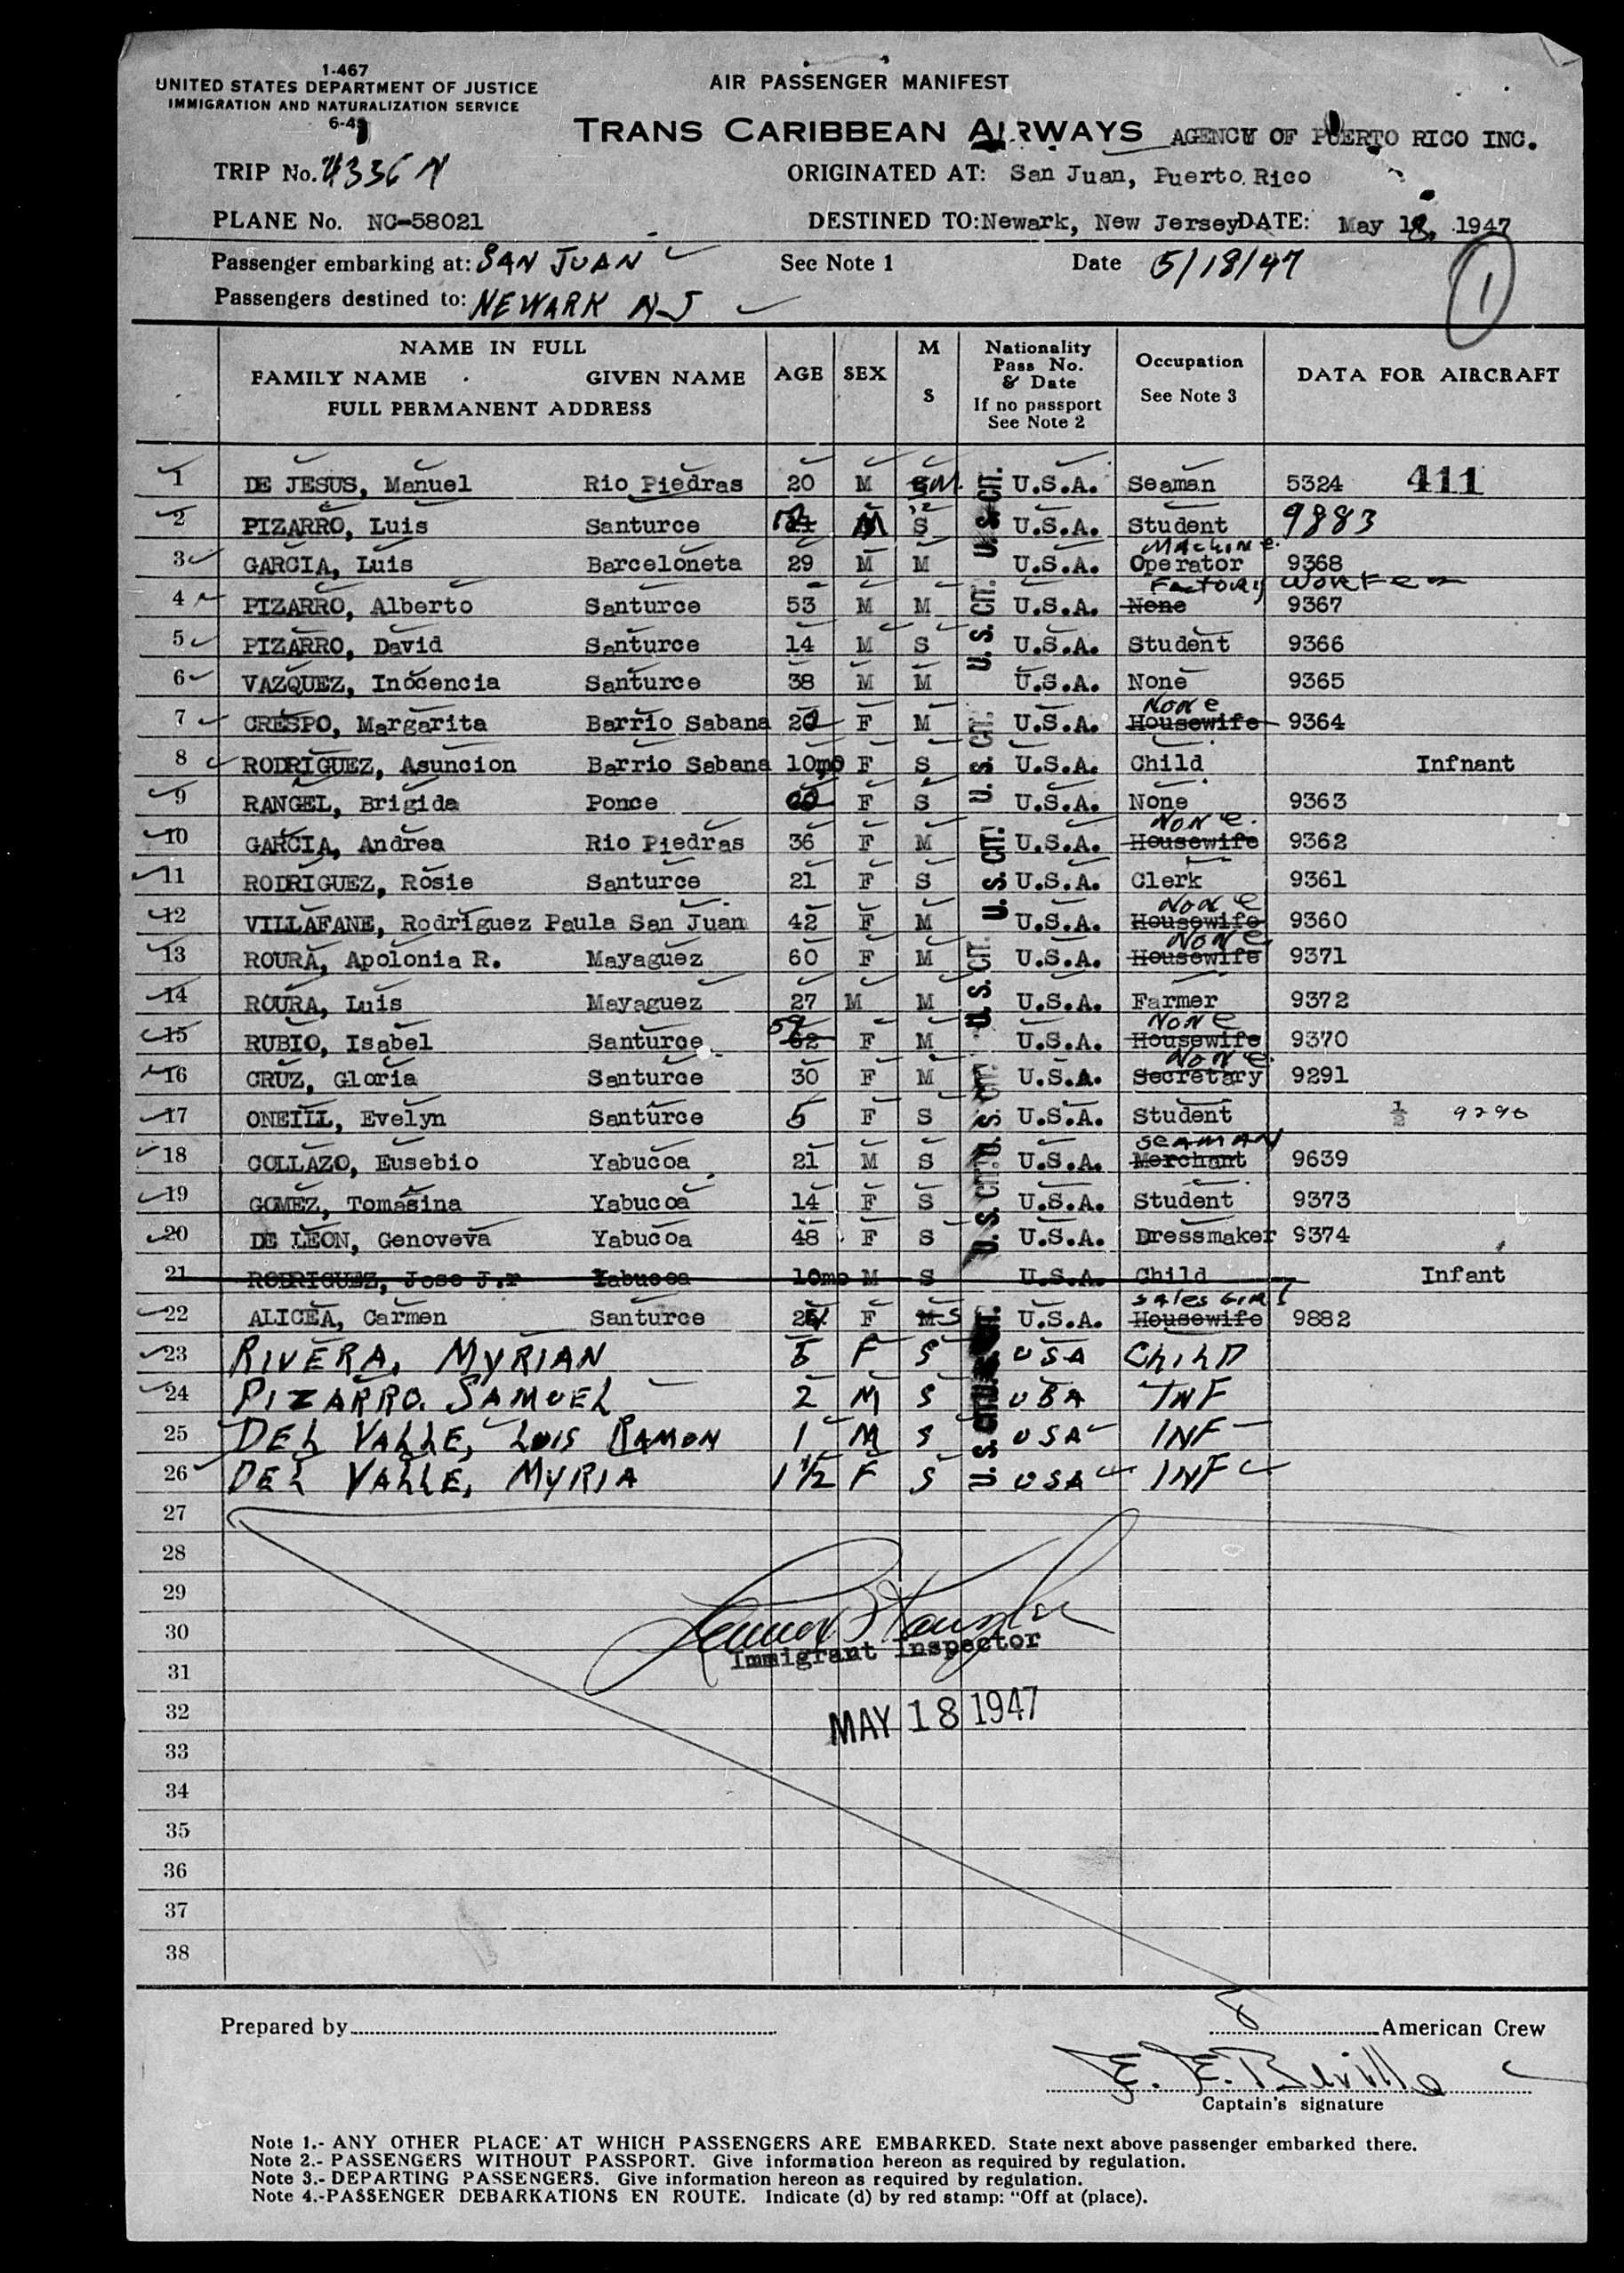 1-467
UNITED STATES DEPARTMENT OF JUSTICE
IMMIGRATION AND NATURALIZATION SERVICE
AIR PASSENGER MANIFEST
TRANS CARIBBEAN AIRWAYS AGENCY OF PUERTO RICO INC.
TRIP No. 4336 N ORIGINATED AT: San Juan, Puerto Rico
PLANE No. NC-58021 DESTINED TO: Newark, New Jersey DATE: May 18, 1947
Passenger embarking at: SAN JUAN See Note 1 Date 5/18/47
Passengers destined to: NEWARK N-J
1
NAME IN FULL
FAMILY NAME GIVEN NAME
FULL PERMANENT ADDRESS
AGE SEX M S
Nationality
Pass No.
& Date
If no passport
See Note 2
Occupation
See Note 3
DATA FOR AIRCRAFT
1 DE JESUS, Manuel Rio Piedras 20 M M. U.S.A. Seaman 5324 411
2 PIZARRO, Luis Santurce M S U.S.A. Student 9883
3 GARCIA, Luis Barceloneta 29 M M U.S.A. Machine Operator 9368
4 PIZARRO, Alberto Santurce 53 M M U.S.A. None Factory Worker 9367
5 PIZARRO, David Santurce 14 M S U.S.A. Student 9366
6 VAZQUEZ, Inocencia Santurce 38 M M U.S.A. None 9365
7 CRESPO, Margarita Barrio Sabana F M U.S.A. Housewife None 9364
8 RODRIGUEZ, Asuncion Barrio Sabana 10mo F S U.S.A. Child Infnant
9 RANGEL, Brigida Ponce F S U.S.A. None 9363
10 GARCIA, Andrea Rio Piedras 36 F M U.S.A. Housewife None 9362
11 RODRIGUEZ, Rosie Santurce 21 F S U.S.A. Clerk 9361
12 VILLAFANE, Rodriguez Paula San Juan 42 F M U.S.A. Housewife None 9360
13 ROURA, Apolonia R. Mayaguez 60 F M U.S.A. Housewife None 9371
14 ROURA, Luis Mayaguez 27 M M U.S.A. Farmer 9372
15 RUBIO, Isabel Santurce 62 59 F M U.S.A. Housewife None 9370
16 CRUZ, Gloria Santurce 30 F M U.S.A. Secretary None 9291
17 ONEILL, Evelyn Santurce 5 F S U.S.A. Student 1/2 9290
18 COLLAZO, Eusebio Yabucoa 21 M S U.S.A. Merchant SEAMAN 9639
19 GOMEZ, Tomasina Yabucoa 14 F S U.S.A. Student 9373
20 DE LEON, Genoveva Yabucoa 48 F S U.S.A. Dressmaker 9374
21 RODRIGUEZ, Jose J.r Yabucoa 10mo M S U.S.A. Child Infant
22 ALICEA, Carmen Santurce F M S U.S.A. Housewife Sales Girl 9882
23 RIVERA, MYRIAN 5 F S USA CHILD
24 PIZARRO. SAMUEL 2 M S USA INF
25 DEL VALLE, LUIS RAMON 1 M S USA INF
26 DEL VALLE, MYRIA 1 1/2 F S USA INF
27
28
29
30
31
32
33
34
35
36
37
38
U.S. CIT.
U.S. CIT.
U.S. CIT.
U.S. CIT.
U.S. CIT.
U.S. CIT.
U.S. CIT.
U.S. CIT.
Immigrant Inspector
MAY 18 1947
Prepared by 8 American Crew
Captain's signature
Note 1.- ANY OTHER PLACE AT WHICH PASSENGERS ARE EMBARKED. State next above passenger embarked there.
Note 2.- PASSENGERS WITHOUT PASSPORT. Give information hereon as required by regulation.
Note 3.- DEPARTING PASSENGERS. Give information hereon as required by regulation.
Note 4.-PASSENGER DEBARKATIONS EN ROUTE. Indicate (d) by red stamp: "Off at (place).